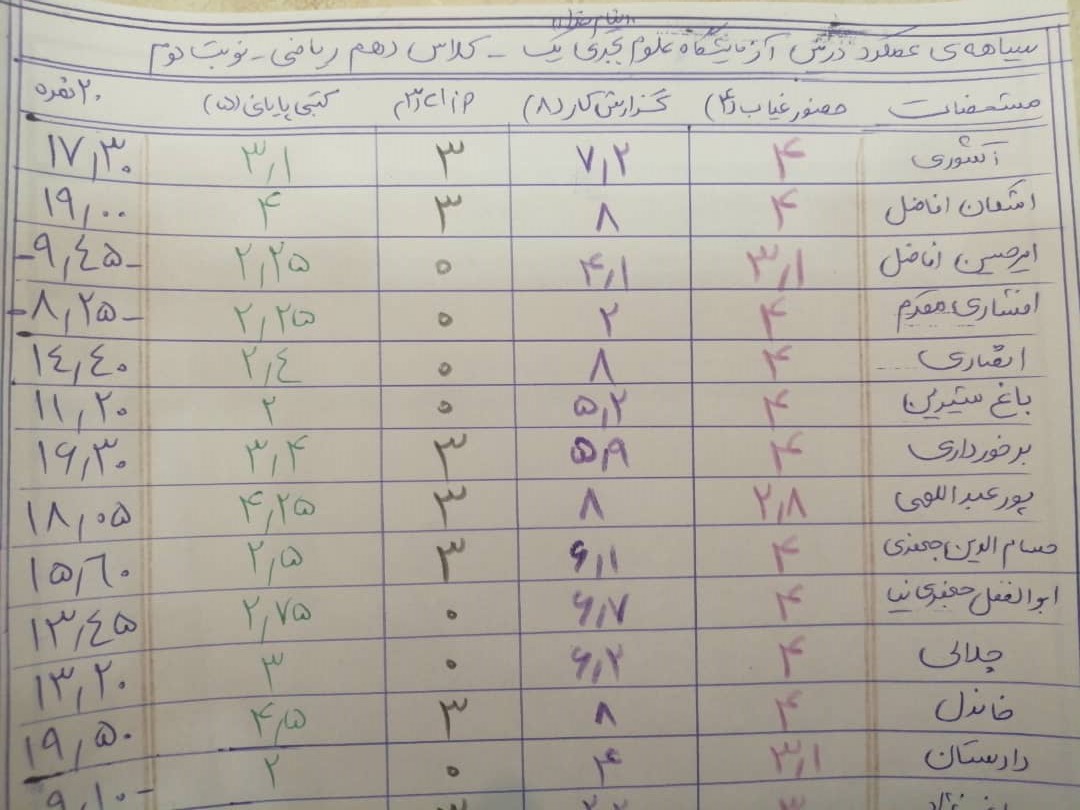 سیاهه‌ی عملکرد درس آزمایشگاه علوم تجربی یک - کلاس دهم ریاضی - نوبت دوم
مشخصات حضور غیاب (۴) گزارش کار (۸) (۳) کتبی پایانی (۵) ۲۰ نمره
آشوری ۴ ۷٫۲ ۳ ۳٫۱ ۱۷٫۳۰
اشکان افاضل ۴ ۸ ۳ ۴ ۱۹٫۰۰
امیرحسین افاضل ۳٫۱ ۴٫۱ ۰ ۲٫۲۵ -۹٫۴۵-
افشاری مقدم ۴ ۲ ۰ ۲٫۲۵ -۸٫۲۵-
انصاری ۴ ۸ ۰ ۲٫۴ ۱۴٫۴۰
باغ شیرین ۴ ۵٫۲ ۰ ۲ ۱۱٫۲۰
برخورداری ۴ ۵٫۹ ۳ ۳٫۴ ۱۶٫۳۰
پورعبداللهی ۲٫۸ ۸ ۳ ۴٫۲۵ ۱۸٫۰۵
حسام الدین جعفری ۴ ۶٫۱ ۳ ۲٫۵ ۱۵٫۶۰
ابوالفضل جعفری نیا ۴ ۶٫۷ ۰ ۲٫۷۵ ۱۳٫۴۵
جلالی ۴ ۶٫۲ ۰ ۳ ۱۳٫۲۰
خاندل ۴ ۸ ۳ ۴٫۵ ۱۹٫۵۰
دارستان ۳٫۱ ۴ ۰ ۲ ۹٫۱۰-